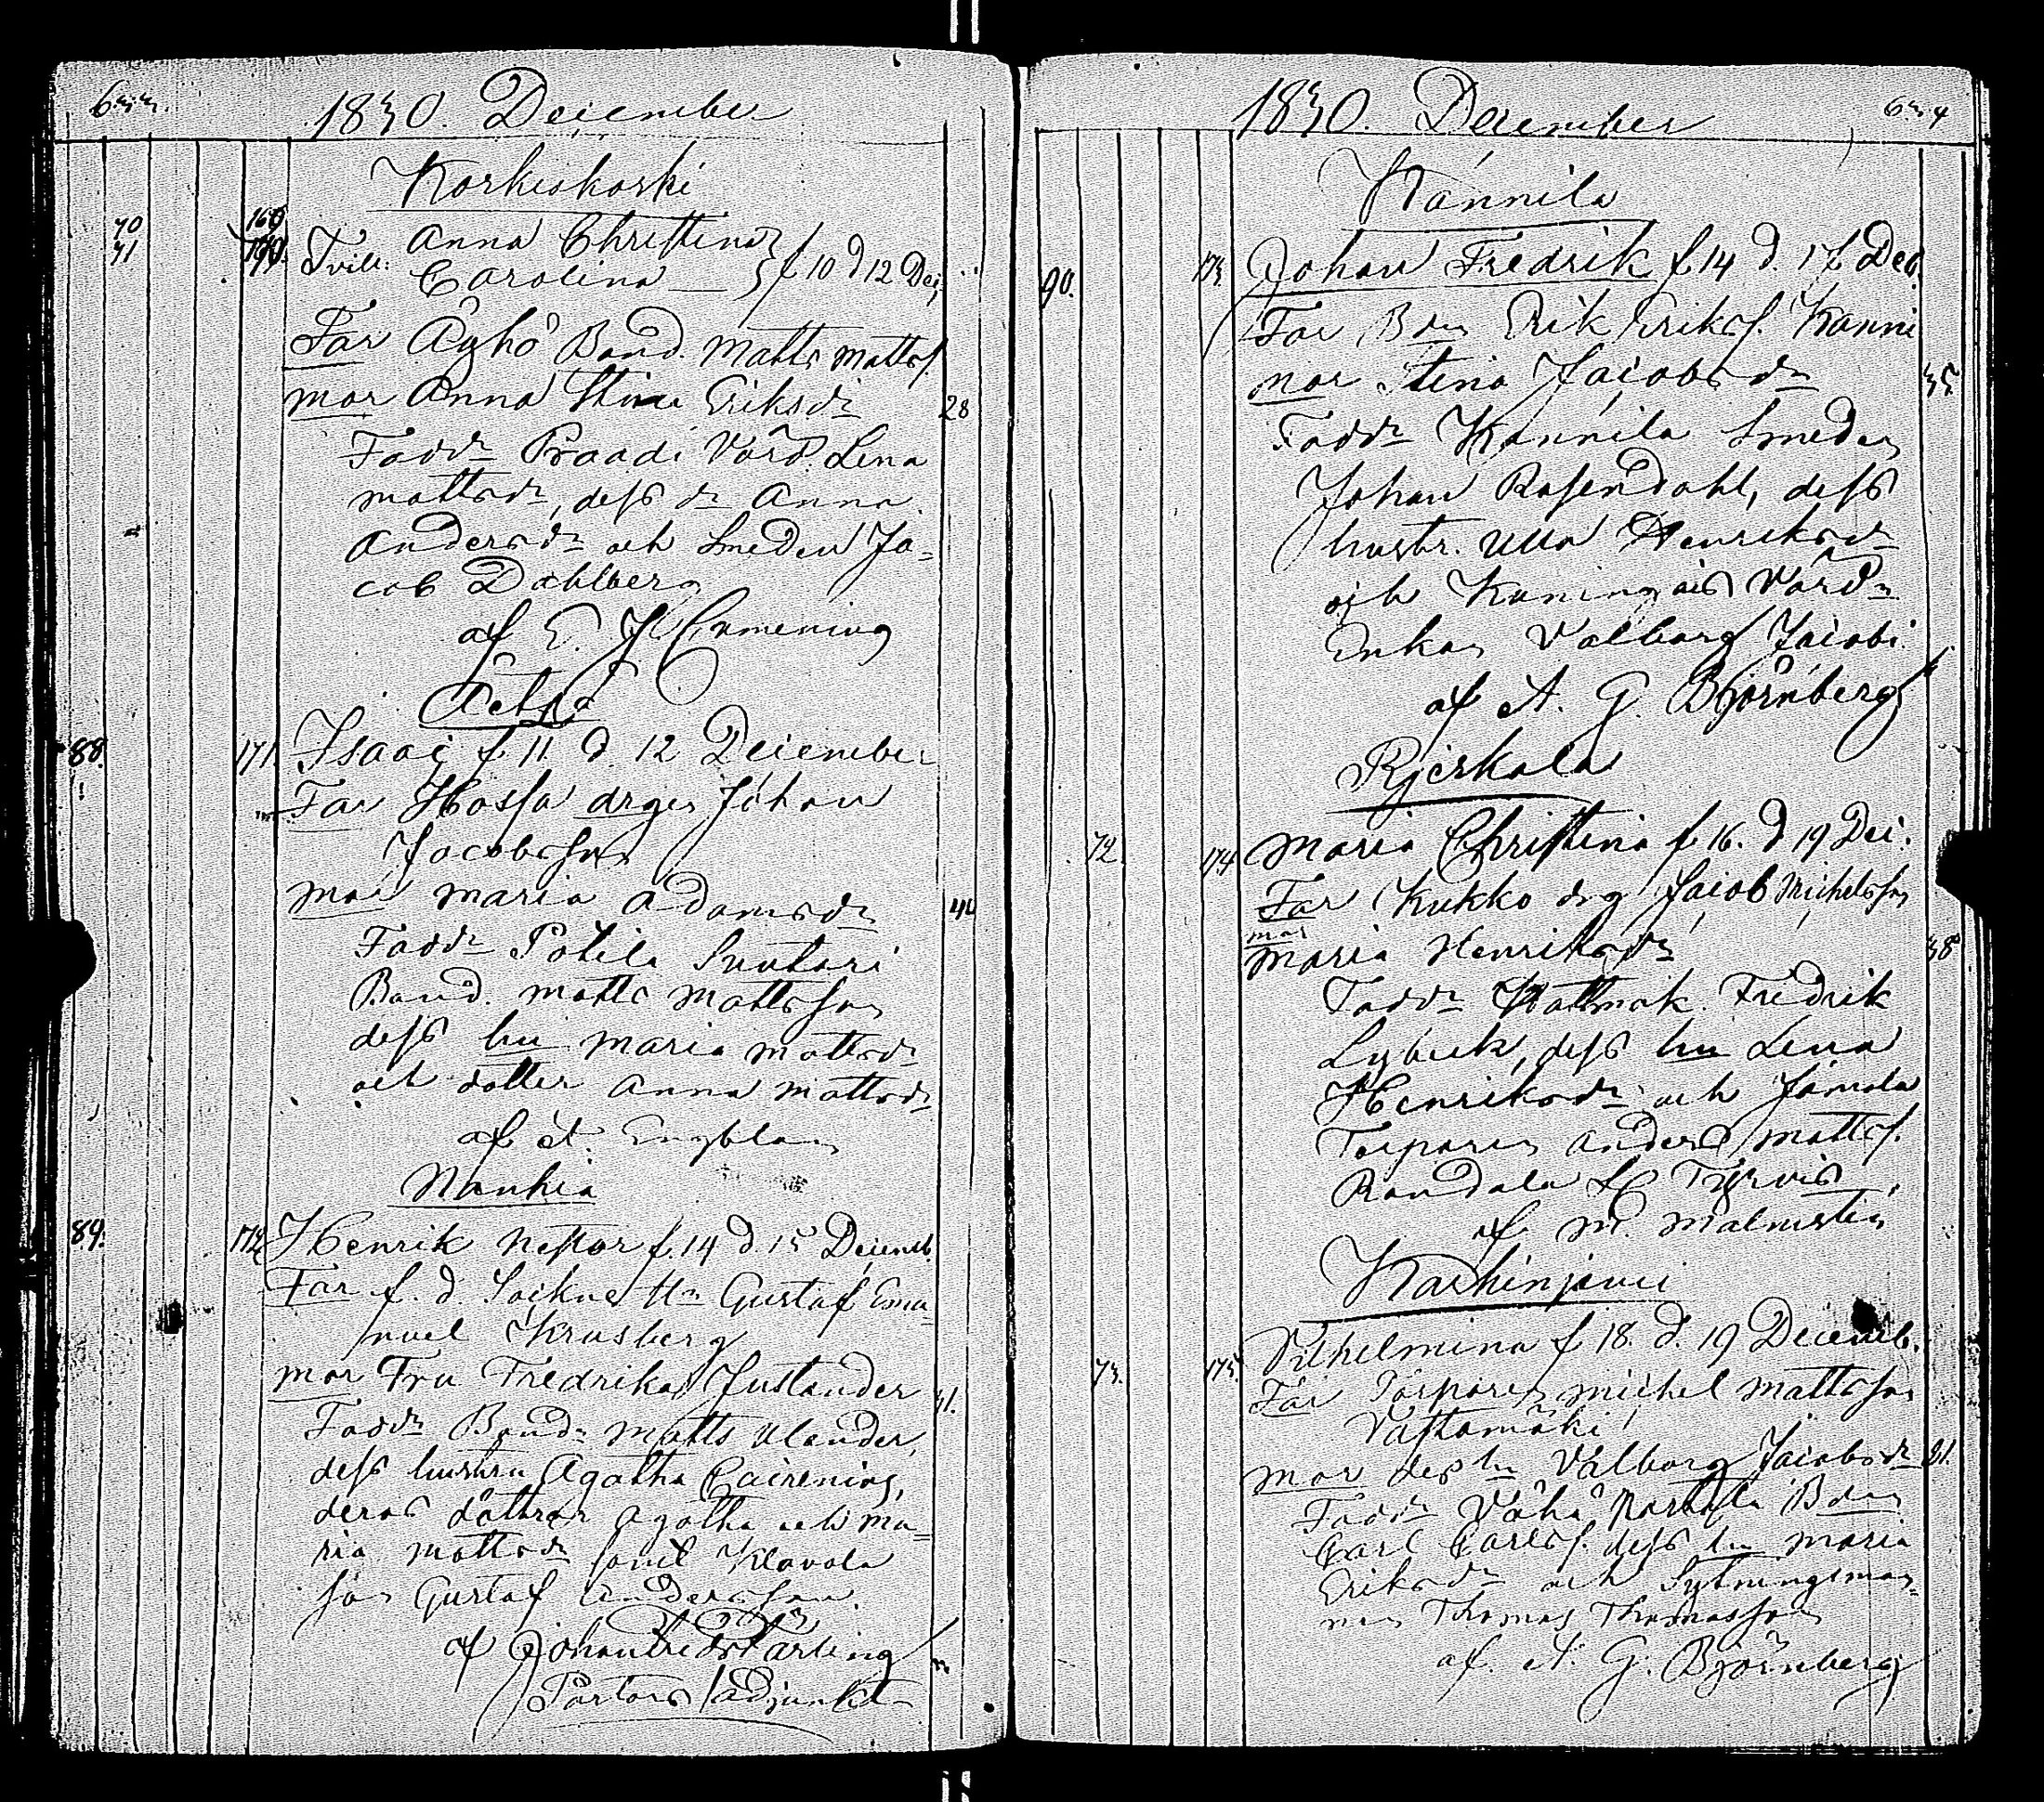 1830. December
Korkiakoski
70 169 Anna Christina
71 170. Tvill: Carolina f 10 d 12 Dec
Far Äyhö Bond. Matts Mattss.
mor Anna Stina Eriksdr 28
Faddr Praadi Värd. Lena
mattsdr, dess dr Anna
Andersdr och Smeden Ja-
cob Dahlberg
af E. J. Emmening
88. 171. Isaac f 11. d. 12 December
Far Hossa drgen Johan
Jacobsson
mor maria adamsdr 40
Faddr Potila Suutari
Bond. matts mattsson
dess hu maria mattsdr
och dotter anna mattsdr
af A. Engblom
Nanhia
89. 172 Henrik Nestor f. 14 d. 15 Decemb.
Far f. d. Länsm Gustaf Ema-
nuel Krusberg
mor Fru Fredrika Justander 41.
Faddr Bondn matts Ulander,
dess hustru Agatha Cairenius,
deras döttrar agatha och ma-
ria mattsdr samt Klavola
son Gustaf andersson.
af Johan Fredr Färling
Pastors adjunkt
1830. December 634
Kännilä
90. 173. Johan Fredrik f 14 d. 17 Dec.
Far Bdn Erik Eriks. Kanni
mor Stina Jacobsdr 35
Faddr Kännilä Smeden
Johan Rosendahl, dess
hustr. Ulla Henriksdr
och Kuningais Värdn
Enkan Valborg Jacobi.
af A. G. Björnberg
Rjerkola
72. 174 Maria Christina f 16. d 19 Dec.
Far Kukko drg Jacob Michelsson
mor
maria Henriksdr 38
Faddr Hattmak. Fredrik
Lybeck, dess hu Lena
Henriksdr och Jamala
Torparen anders mattss.
Randala & Tyrvis
af M. Malmsten
Karhinjemi
73. 175. Vilhelmina f 18. d. 19 Decemb.
Far Torparen michel mattsson
Vastamäki
mor dess hu Valborg Jacobsdr 21.
Faddr Vähä Bdn
Carl Carlss. dess hu maria
Eriksdr och Sytningsman-
nen Thomas Thomasson
af. A. G. Björnberg